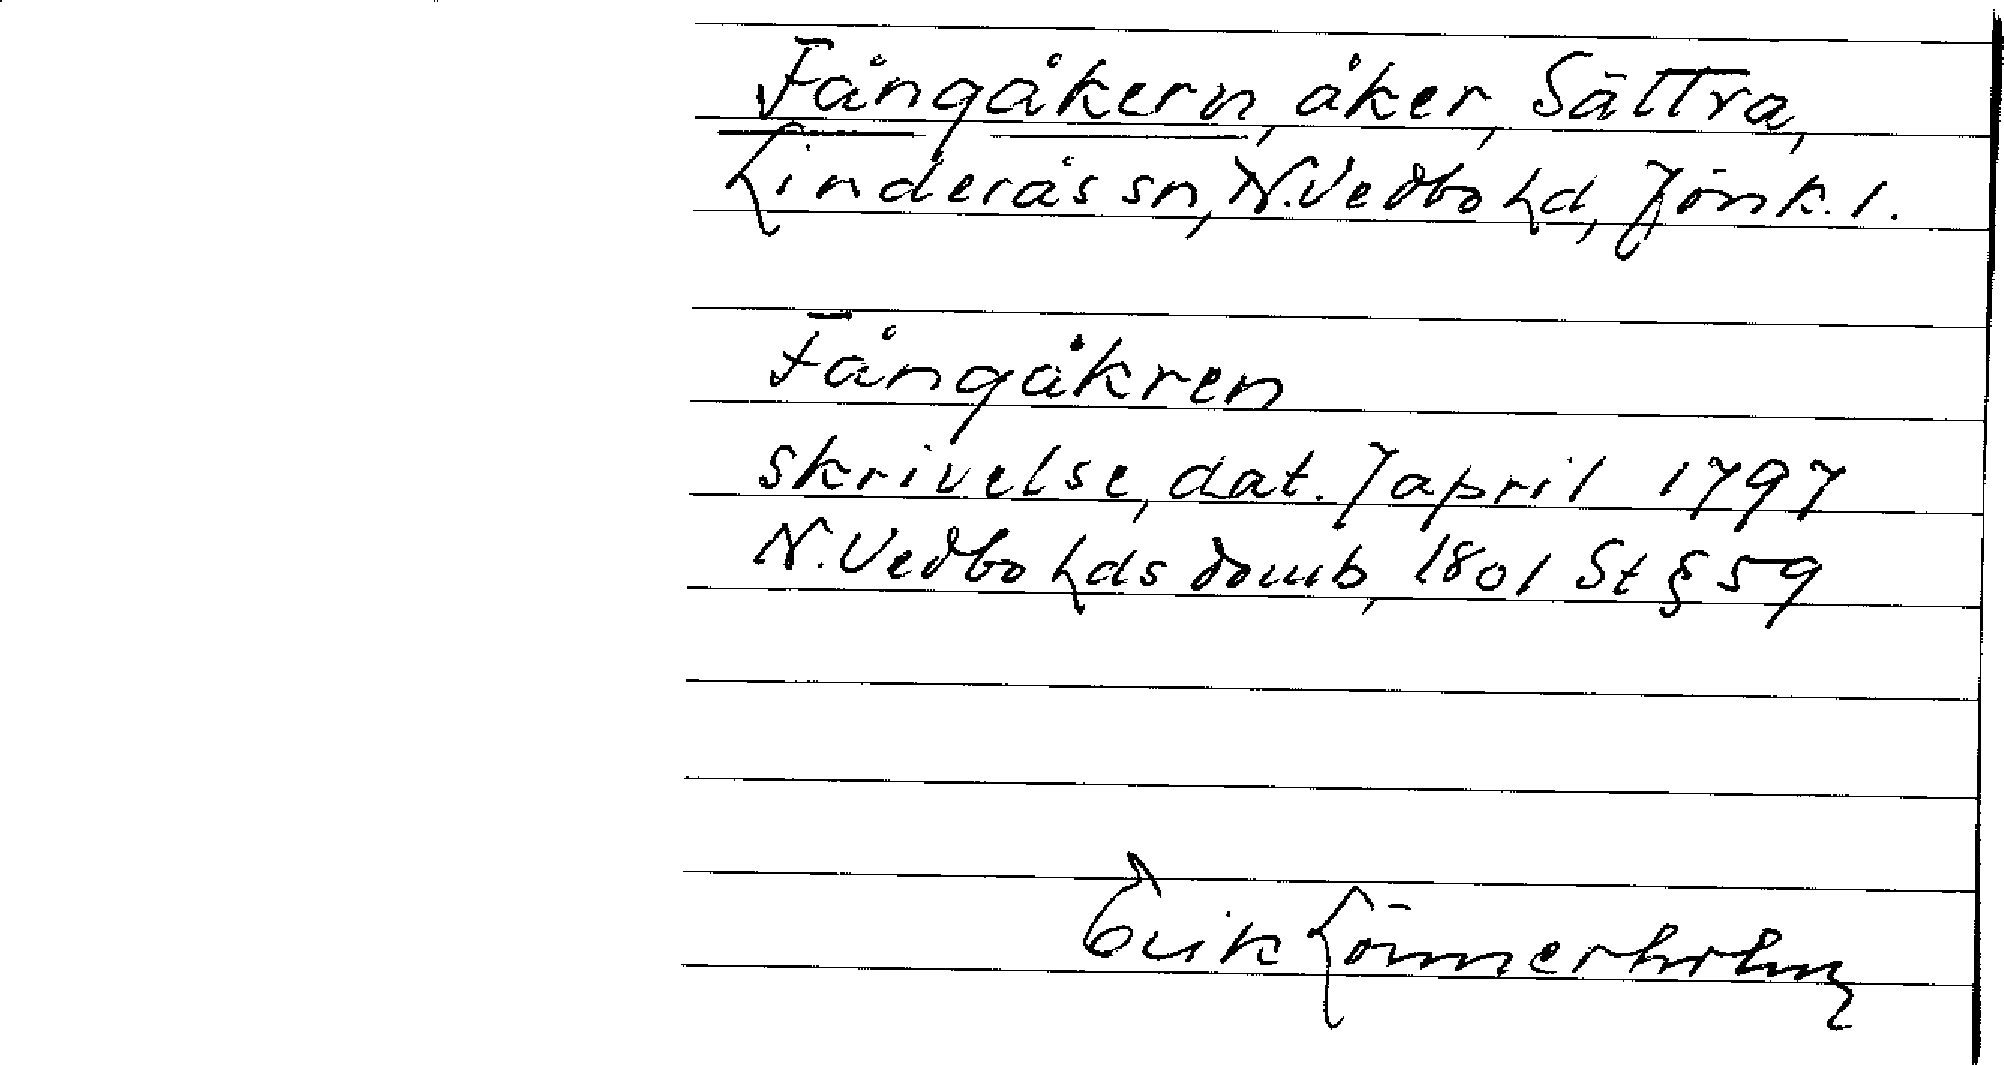 Fångåkern, åker, Sättra,
Linderås sn, N. Vedbo hd, Jönk. l.
Fångåkren
skrivelse, dat. 7 april 1797
N. Vedbo hds domb, 1801 St § 59
Erik Lönnerholm